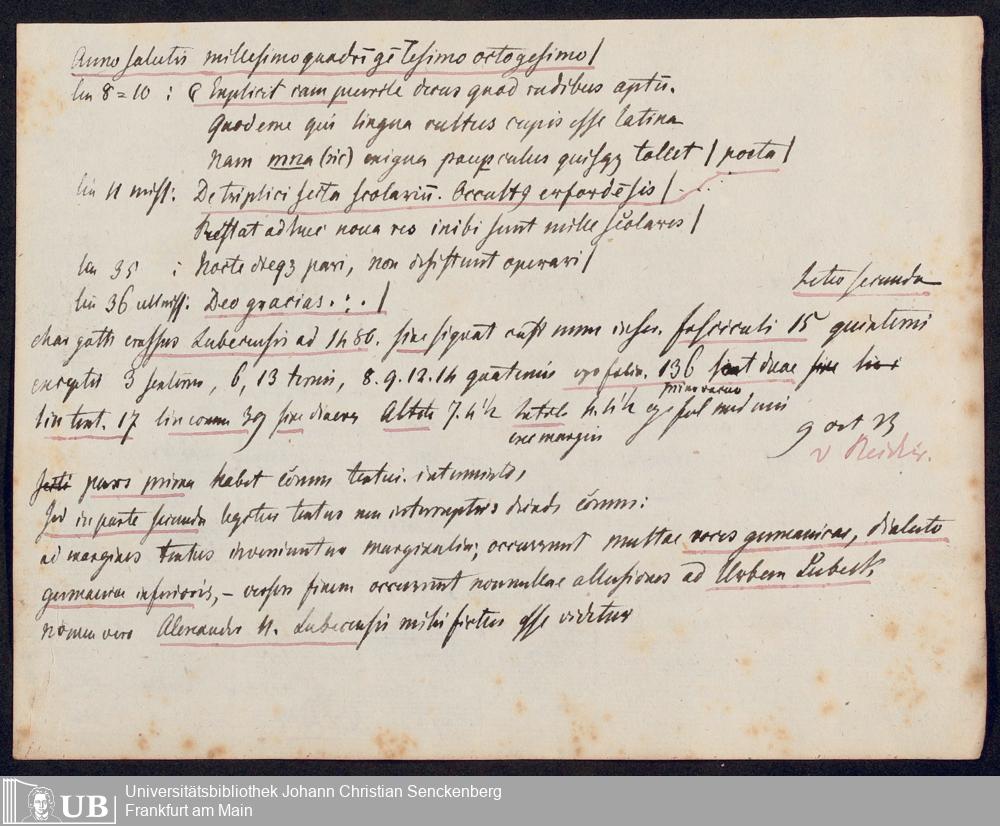 Anno salutis millesimo quadrīgētesimo octogesimo /
lin 8=10 : Explicit cum puerile decus quod rudibus aptū.
Quod eme qui lingua cultus cupis esse latina
Nam mna (sic) exigua paupculus quisqz tollet / poeta /
lin 11 miss: De triplici secta scolariū. Occultq erfordēsis /
Restat adhuc noua res inibi sunt mille scolares /
lin 35 : Nocte dieqz pari, non desistunt operari /
lin 36 ult miss: Deo gracias . : . /
Lectio secunda
char goth crassus Lubecensis ad 1486. sine signat cust num inser. fasciculi 15 quinterni
exceptis 3 sexternus, 6, 13 ternis, 8. 9. 12. 14 quaternis ergo folia. 136 duae
primo vacuo
lin text. 17 lin comm 39 sive diacra Alt 7. 4½ Lat 4. 4½
exc margin
9 oct 23
v Reichir.
pars prima habet cōmm textui. intermixto,
Sed in parte secunda legitur textus non interruptus deinde cōmm:
ad margines textus inveniuntur marginalia; occurrunt multae voces germanicae, dialecto
germaniae inferioris, – versus finem occurrunt nonnullae allusiones ad Urbem Lübeck,
nomen vero Alexander H. Lubecensis mihi fictus esse videtur
UB Universitätsbibliothek Johann Christian Senckenberg
Frankfurt am Main